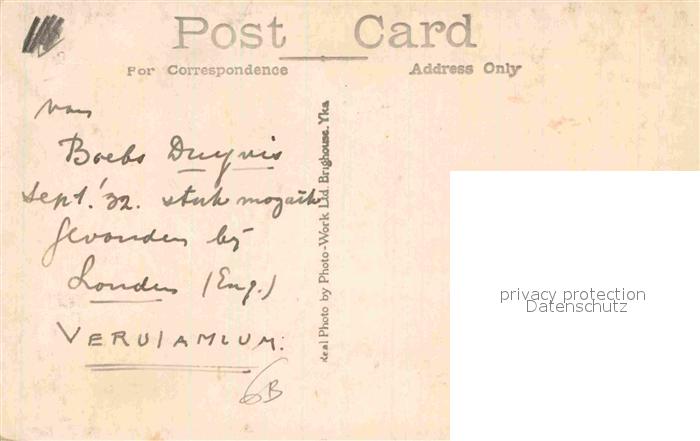 Post Card
For Correspondence
Address Only
van
Boebs Duyvis
sept. '32. stuk mozaïk
gevonden bij
Londen (Eng.)
VERULAMIUM.
6B
Real Photo by Photo-Work Ltd. Brighouse. Yks
privacy protection
Datenschutz